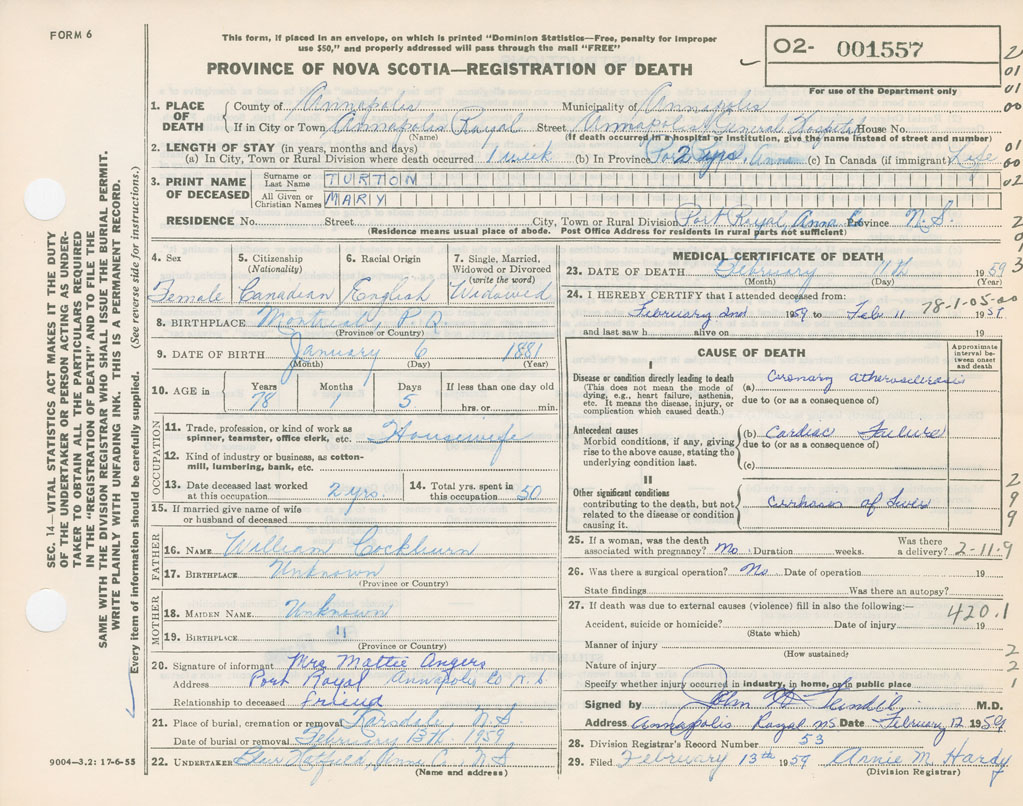 FORM 6
This form, if placed in an envelope, on which is printed "Dominion Statistics—Free, penalty for improper
use $50," and properly addressed will pass through the mail "FREE"
PROVINCE OF NOVA SCOTIA—REGISTRATION OF DEATH
02- 001557
For use of the Department only
SEC. 14—VITAL STATISTICS ACT MAKES IT THE DUTY
OF THE UNDERTAKER OR PERSON ACTING AS UNDER-
TAKER TO OBTAIN ALL THE PARTICULARS REQUIRED
IN THE "REGISTRATION OF DEATH" AND TO FILE THE
SAME WITH THE DIVISION REGISTRAR WHO SHALL ISSUE THE BURIAL PERMIT.
WRITE PLAINLY WITH UNFADING INK. THIS IS A PERMANENT RECORD.
Every item of information should be carefully supplied. (See reverse side for instructions.)
1. PLACE OF DEATH County of Annapolis Municipality of Annapolis
If in City or Town Annapolis Royal Street Annapolis General Hospital House No.
(Name) (If death occurred in a hospital or institution, give the name instead of street and number)
2. LENGTH OF STAY (in years, months and days)
(a) In City, Town or Rural Division where death occurred 1 week (b) In Province 2 yrs (c) In Canada (if immigrant) Life
3. PRINT NAME OF DECEASED
Surname or Last Name TURTON
All Given or Christian Names MARY
RESIDENCE No. Street City, Town or Rural Division Port Royal, Anna Co Province N.S.
(Residence means usual place of abode. Post Office Address for residents in rural parts not sufficient)
4. Sex Female
5. Citizenship (Nationality) Canadian
6. Racial Origin English
7. Single, Married, Widowed or Divorced (write the word) Widowed
8. BIRTHPLACE Montreal, P.Q.
(Province or Country)
9. DATE OF BIRTH January 6 1881
(Month) (Day) (Year)
10. AGE in Years 78 Months 1 Days 5 If less than one day old
hrs. or min.
OCCUPATION
11. Trade, profession, or kind of work as
spinner, teamster, office clerk, etc. Housewife
12. Kind of industry or business, as cotton-
mill, lumbering, bank, etc.
13. Date deceased last worked at this occupation 2 yrs. 14. Total yrs. spent in this occupation 50
15. If married give name of wife
or husband of deceased
FATHER
16. NAME William Cockburn
17. BIRTHPLACE Unknown
(Province or Country)
MOTHER
18. MAIDEN NAME Unknown
19. BIRTHPLACE "
(Province or Country)
20. Signature of informant Mrs Mattie Angers
Address Port Royal Annapolis Co N.S.
Relationship to deceased friend
21. Place of burial, cremation or removal Karsdale, N.S.
Date of burial or removal February 13th. 1959
22. UNDERTAKER Anna Co, N.S
(Name and address)
9004—3.2: 17-6-55
MEDICAL CERTIFICATE OF DEATH
23. DATE OF DEATH February 11th 1959
(Month) (Day) (Year)
24. I HEREBY CERTIFY that I attended deceased from:
78-1-05-00
February 2nd 1959 to Feb 11 1959
and last saw h alive on 19
CAUSE OF DEATH
Approximate interval be-tween onset and death
I
Disease or condition directly leading to death
(This does not mean the mode of
dying, e.g., heart failure, asthenia,
etc. It means the disease, injury, or
complication which caused death.)
(a) Coronary atherosclerosis
due to (or as a consequence of)
Antecedent causes
Morbid conditions, if any, giving
rise to the above cause, stating the
underlying condition last.
(b) Cardiac Failure
due to (or as a consequence of)
(c)
II
Other significant conditions
contributing to the death, but not
related to the disease or condition
causing it.
Cirrhosis of Liver
25. If a woman, was the death associated with pregnancy? No Duration weeks. Was there a delivery? 2-11-9
26. Was there a surgical operation? No Date of operation 19
State findings Was there an autopsy?
27. If death was due to external causes (violence) fill in also the following:—
420.1
Accident, suicide or homicide? Date of injury 19
(State which)
Manner of injury
(How sustained)
Nature of injury
Specify whether injury occurred in industry, in home, or in public place
Signed by John M.D.
Address Annapolis Royal NS Date February 12 1959
28. Division Registrar's Record Number 53
29. Filed February 13th 1959 Annie M. Hardy
(Division Registrar)